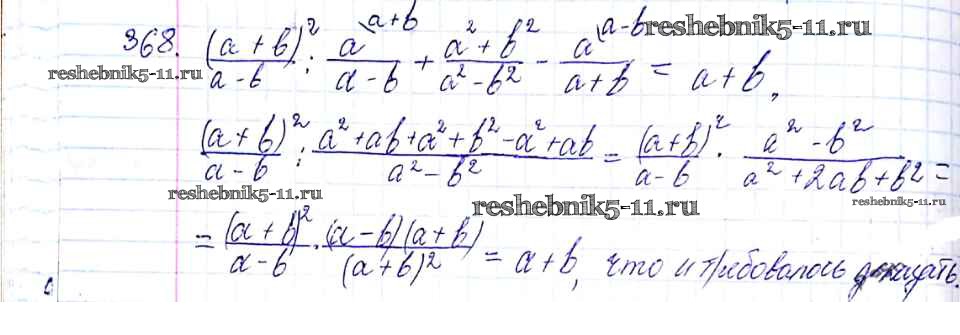 reshebnik5-11.ru
368. (a+b)²/(a-b) : a\a+b/(a-b) + (a²+b²)/(a²-b²) - a\a-b/(a+b) = a+b,
reshebnik5-11.ru
(a+b)²/(a-b) : (a²+ab+a²+b²-a²+ab)/(a²-b²) = (a+b)²/(a-b) · (a²-b²)/(a²+2ab+b²) =
reshebnik5-11.ru reshebnik5-11.ru reshebnik5-11.ru
= (a+b)²/(a-b) · (a-b)(a+b)/(a+b)² = a+b, что и требовалось доказать.